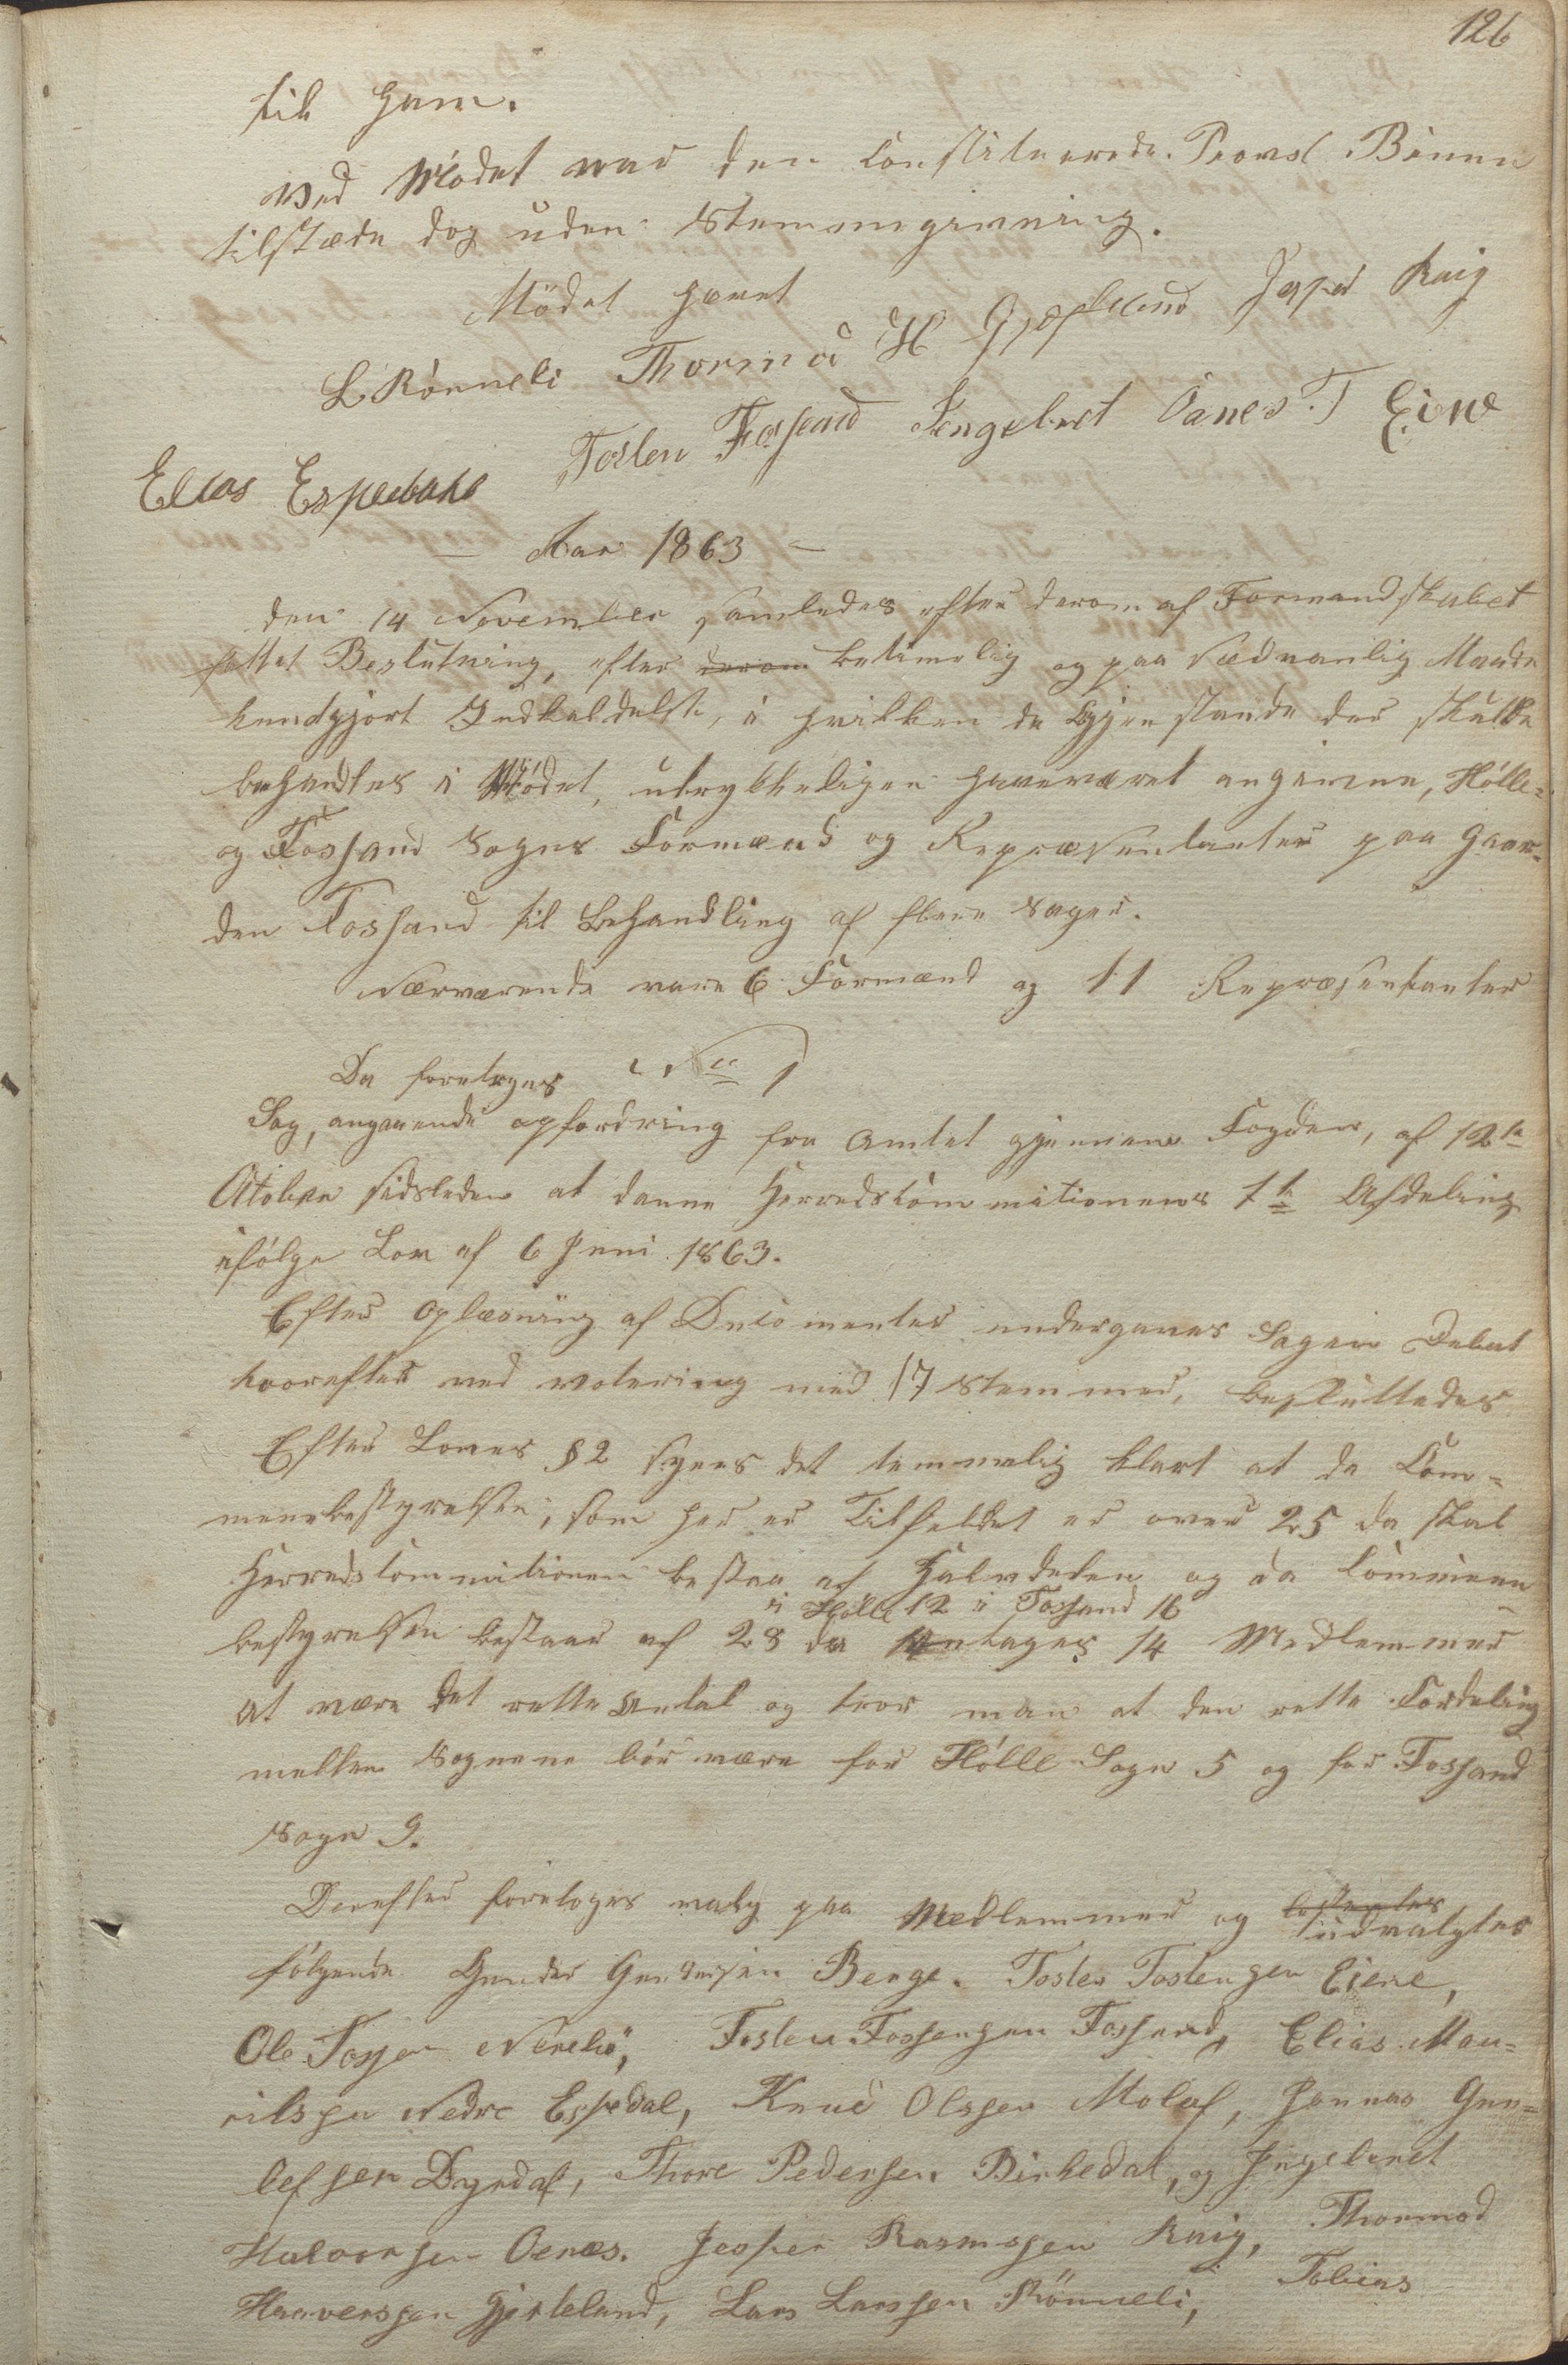 126
til ham.
Ved Mödet var den Constituerede Provst Bömn
tilstæde dog uden Stemmegivning.
Mödet hævet
L Rönneli Thormod H Gjesteland Jesper Kaig
Tosten Fossand Ingebret Oanes T Eiene
Elias Espedahl
– Aar 1863 –
den 14 November samledes efter derom af Formandskabet
fattet Beslutning, efter derom betimelig og paa sædvanlig Maade
kundgjort Indkaldelse, i hvilken de Gjenstande der skulle
behandles i Mödet, utrykkeligen have været angivne, Hölle-
og Fossand Sogns Formænd og Repræsentanter paa Gaar-
den Fossand til Behandling af flere Sager.
Nærværende vare 6 Formænd og 11 Repræsentanter
Da foretoges No 1
Sag, angaaende opfordring fra Amtet gjennem Fogden, af 12te
Otober sidsleden at danne Herredskommitionens 1te Afdeling
ifölge Lov af 6 Juni 1863.
Efter Oplæsning af Documenter undergaves Sagen Debat
hvorefter ved votering med 17 Stemmer, besluttedes
Efter Loves § 2 synes det temmelig klart at da Com-
munebestyrelse, som her er Tilfeldet er over 25 da skal
Herredskommitionen bestaa af Halvdelen og da Commune
i Hölle 12 i Fossand 16
bestyrelsen bestaar af 28 da antages 14 Medlemmer
at være det rette Antal og tror man at den rette Fordeling
mellem Sognene bör være for Hölle Sogn 5 og for Fossand
Sogn 9.
Derefter foretoges valg paa Medlemmer og
udvalgtes
fölgende Gunder Gundersen Berge. Tosten Tostensen Eiene,
Ole Tossen Nerebö, Tosten Tossensen Fossand, Elias Mau-
ritsen Nedre Espedal, Knud Olssen Molaf, Jonnas Gun-
lefsen Dyrdal, Thore Pedersen Birkedal, og Ingebret
Halvorsen Oenæs. Jesper Rasmssen Kaig, Thormod
Haaverssen Gjesteland, Lars Larssen Rönneli, Tobias